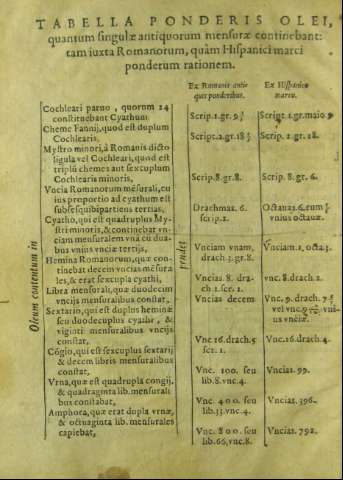 TABELLA PONDERIS OLEI,
quantum singulæ antiquorum mensuræ continebant:
tam iuxta Romanorum, quàm Hispanici marci
ponderum rationem.
Ex Romanis anti-
quis ponderibus.
Ex Hispanico
marco.
Oleum contentum in
pendet
Cochleari paruo, quorum 24
constituebant Cyathum
Scrip.1.gr.
Script.1.gr.maio
Cheme Fannij, quod est duplum
Cochlearis,
Script.2.gr.18
Scrip.2.gr.18.
Mystro minori, à Romanis dicto
ligula vel Cochleari, quod est
triplũ chemes aut sextuplum
Cochlearis minoris,
Scrip.8.gr.8.
Scrip.8.gr.6.
Vncia Romanorum mẽsurali, cu
ius proportio ad cyathum est
subsesquibipartiens tertias,
Drachmas.6.
scrip.1.
Octauas.6.cum
vnius octauæ.
Cyatho, qui est quadruplus My-
stri minoris, & continebat vn-
ciam mensuralem vnà cũ dua-
bus vnius vnciæ tertijs,
Vnciam vnam,
drach.3.gr.8.
Vnciam.1,octa.3.
Hemina Romanorum, quæ con-
tinebat decem vncias mẽsura
les, & erat sexcupla cyathi,
Vncias.8. dra-
ch.1.scr.1.
vnc.8.drach.1.
Libra mensurali, quæ duodecim
vncijs mensuralibus constat,
Vncias decem
Vnc.9.drach.7
vel vnc.9 vni-
us vnciæ.
Sextario, qui est duplus heminæ
seu duodecuplus cyathi, &
viginti mensuralibus vncijs
constat,
Vnc.16.drach.5
scr.1.
Vnc.16.drach.4.
Cõgio, qui est sexcuplus sextarij
& decem libris mensuralibus
constabat,
Vnc. 100. seu
lib.8.vnc.4.
Vncias.99.
Vrna, quæ est quadrupla congij,
& quadraginta lib.mensurali
bus constabat,
Vnc. 400. seu
lib.33.vnc.4.
Vncias.396.
Amphora, quæ erat dupla vrnæ,
& octuaginta lib.mensurales
capiebat,
Vnc. 800. seu
lib.66,vnc.8.
Vncias.792.